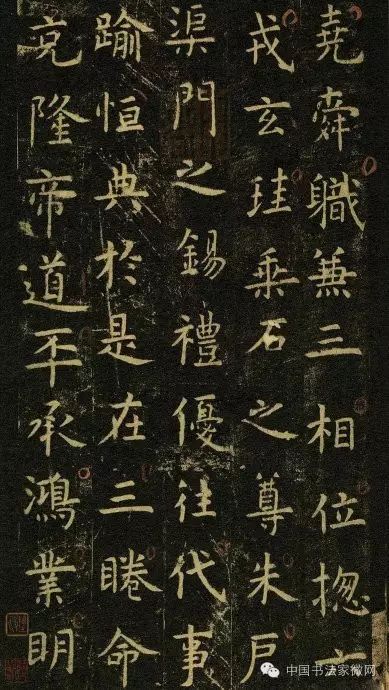 堯舜職兼三相位揔
戎玄珪乘石之尊朱戶
渠門之錫禮優往代事
踰恒典於是在三睠命
克隆帝道丕承鴻業明
中国书法家微网